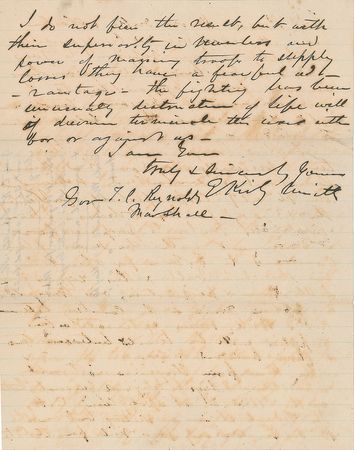 I do not fear the result, but with
their superiority in numbers and
power of massing troops to supply
losses they have a fearful ad-
- vantage - the fighting has been
destruction of life will
if decisive terminate this war either
for or against us -
I am Gov
truly & Sincerely Yours
E Kirby Smith
Gov T. C. Reynolds
Marshall -